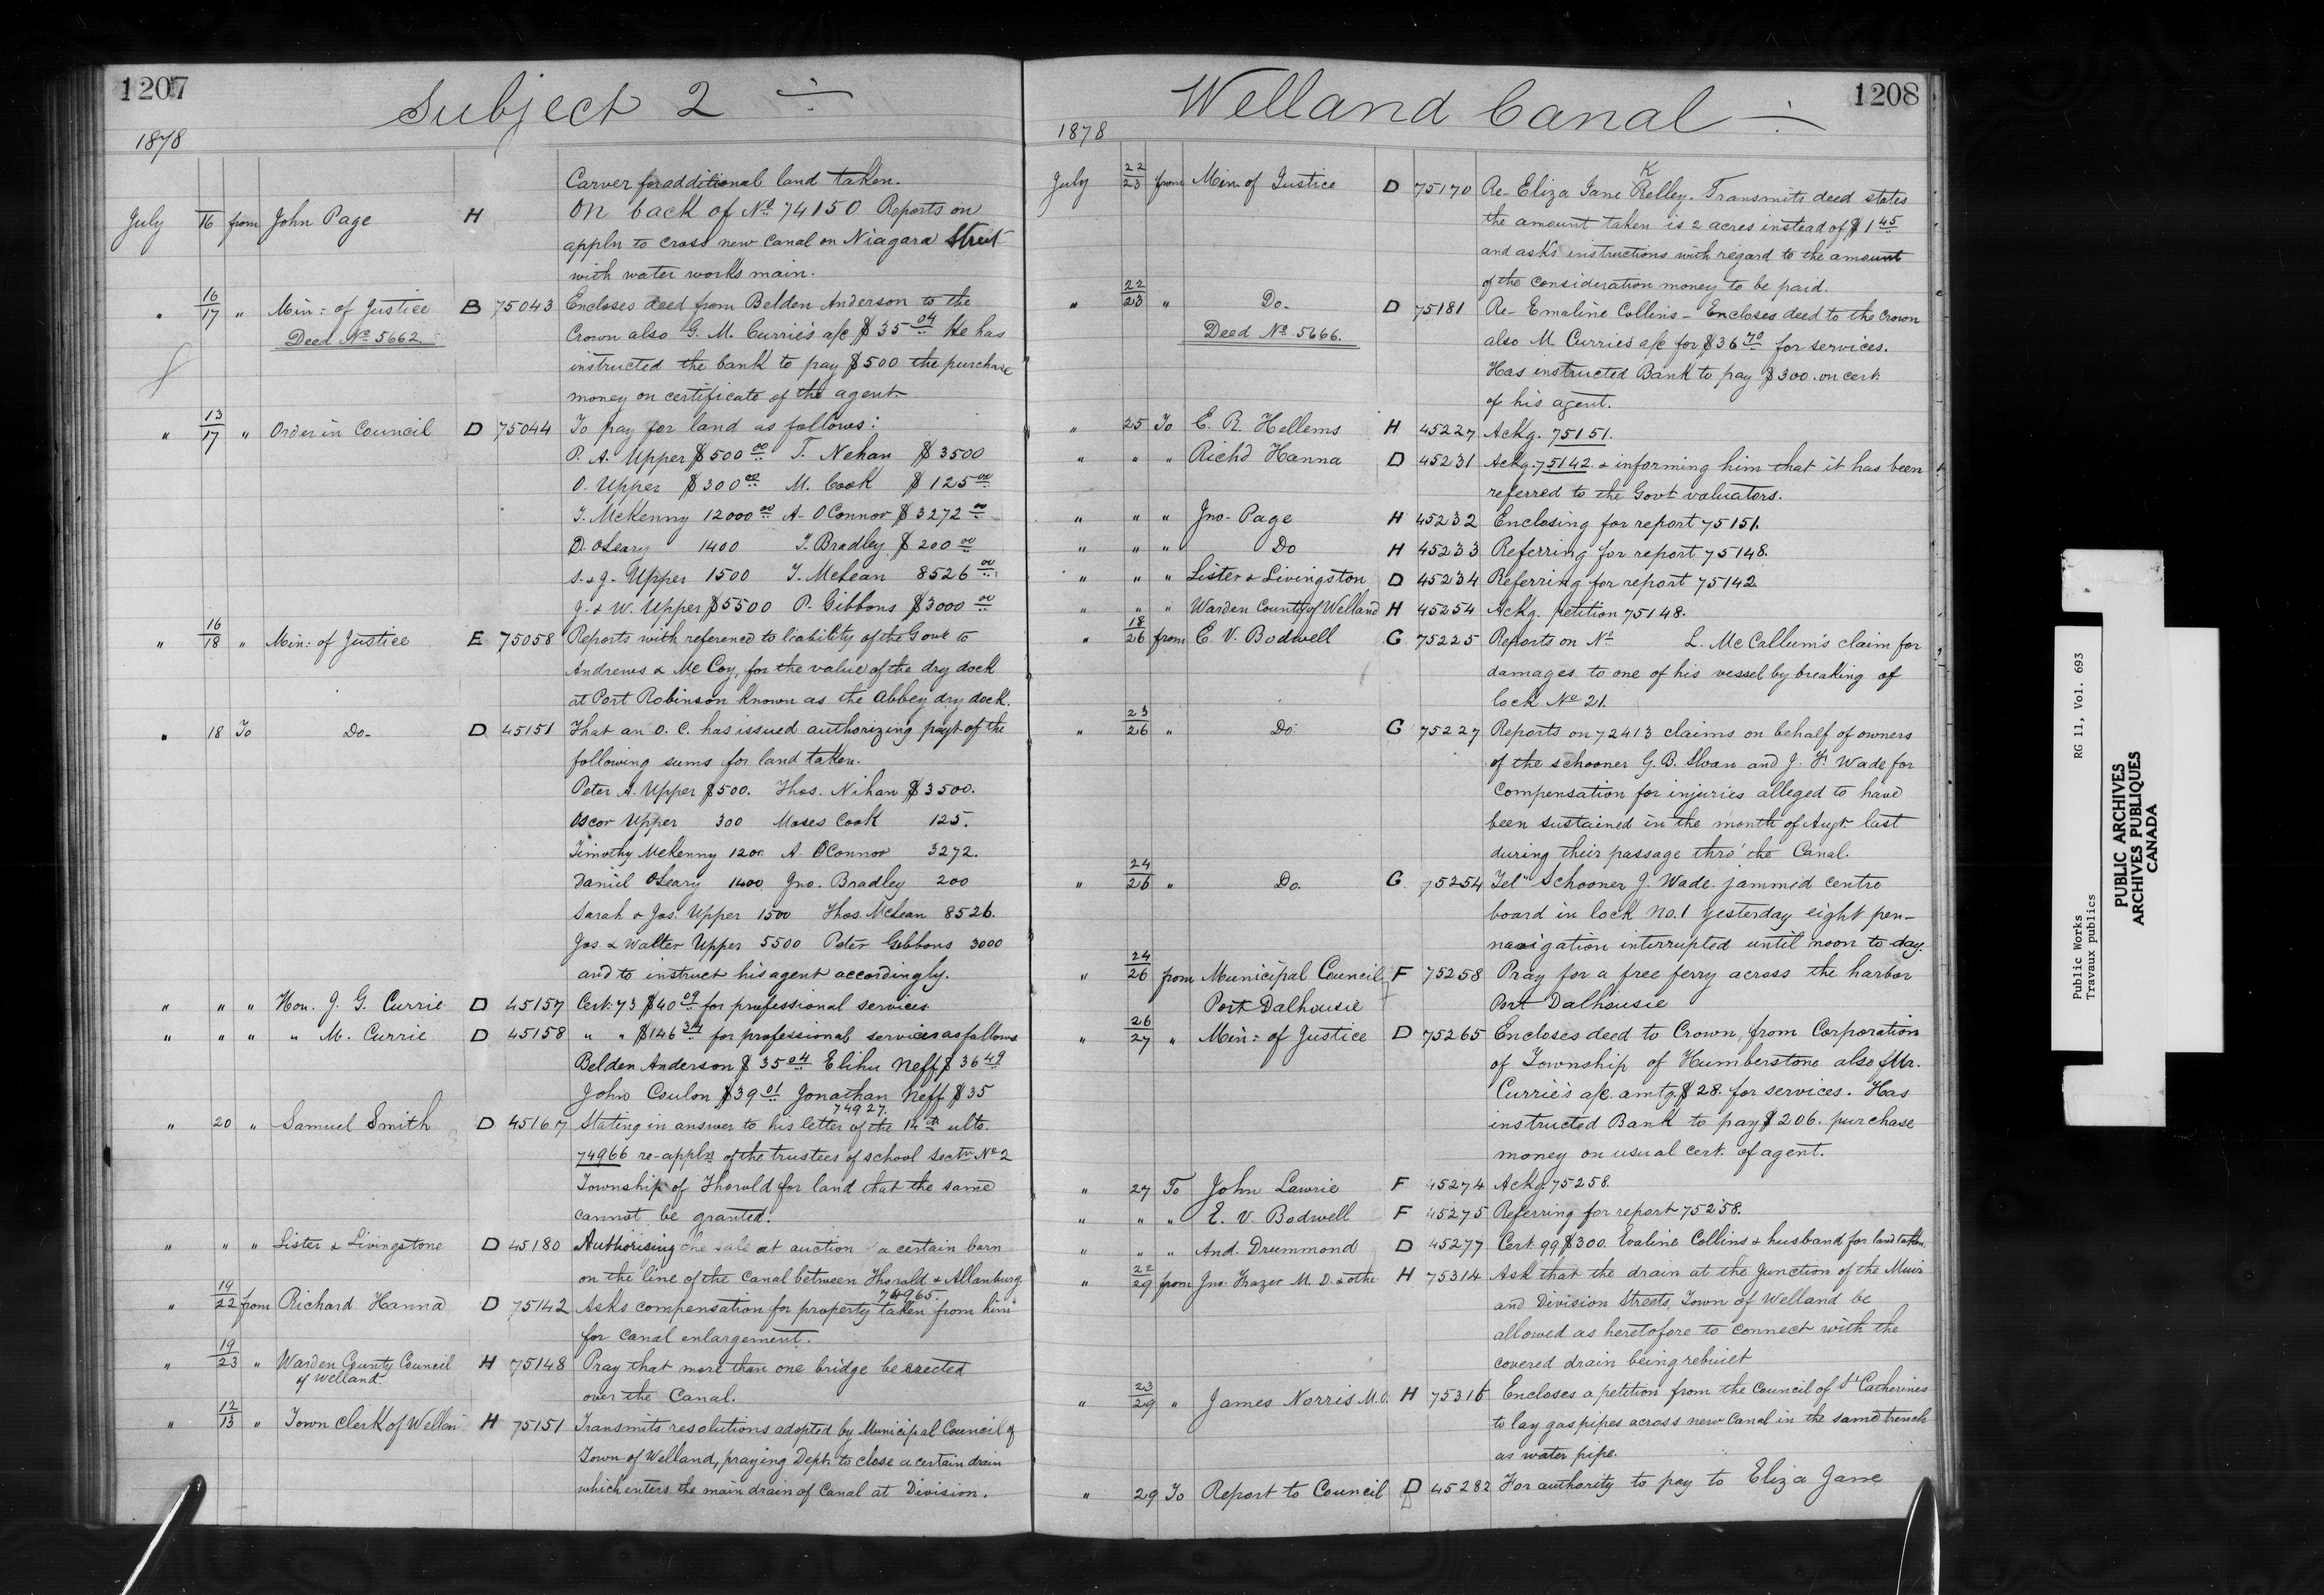 1207
Subject 2
1878
Carver for additional land taken.
July 16 from John Page H On back of No. 74150 Reports on
appln to cross new Canal on Niagara Street
with water works main.
" 16/17 " Min: of Justice B 75043 Encloses deed from Belden Anderson to the
Deed No. 5662 Crown also G. M. Currie's a/c $35 04 He has
instructed the bank to pay $500 the purchase
money on certificate of the agent
" 13/17 " Order in Council D 75044 To pay for land as follows:
P. A. Upper $500 00 T. Nehan $3500
O. Upper $300 00 M. Cook $125 00
T. McKenny 12000 00 A. OConnor $3272 00
D. OLeary 1400 J. Bradley $200 00
S. & J. Upper 1500 T. McLean 8526 00
J. & W. Upper $5500 P. Gibbons $3000 00
" 16/18 " Min: of Justice E 75058 Reports with reference to liability of the Govt to
Andrews & McCoy, for the value of the dry dock
at Port Robinson known as the Abbey dry dock.
" 18 To Do- D 45151 That an O. C. has issued authorizing payt of the
following sums for land taken.
Peter A. Upper $500. Thos. Nihan $3500.
Oscor Upper 300 Moses Cook 125.
Timothy McKenny 1200 A. OConnor 3272.
Daniel OLeary 1400 Jno. Bradley 200
Sarah & Jas. Upper 1500 Thos. McLean 8526.
Jos. & Walter Upper 5500 Peter Gibbons 3000
and to instruct his agent accordingly.
" " " Hon. J. G. Currie D 45157 Cert. 73 $40 09 for professional services
" " " " M. Currie D 45158 " " $146 34 for professional services as follows
Belden Anderson $35 04 Elihu Neff $36 49
John Coulon $39 01 Jonathan Neff $35
74927.
" 20 " Samuel Smith D 45167 Stating in answer to his letter of the 14th ulto.
74966 re-appln of the trustees of school sectn No 2
Township of Thorold for land that the same
cannot be granted.
" " " Lister & Livingstone D 45180 Authorising the sale at auction of a certain barn
on the line of the Canal between Thorold & Allanburg
74965.
" 19/22 from Richard Hanna D 75142 Asks compensation for property taken from him
for canal enlargement.
" 19/23 " Warden County Council H 75148 Pray that more than one bridge be erected
of Welland. over the Canal.
" 12/13 " Town Clerk of Wellan H 75151 Transmits resolutions adopted by Municipal Council of
Town of Welland, praying Dept. to close a certain drain
which enters the main drain of Canal at Division.
Welland Canal
1208
1878
K
July 22/23 from Min. of Justice D 75170 Re- Eliza Jane Relley. Transmits deed states
the amount taken is 2 acres instead of $1 45
and asks instructions with regard to the amount
of the consideration money to be paid.
" 22/23 " Do- D 75181 Re- Emaline Collins - Encloses deed to the Crown
Deed No. 5666. also M. Currie's a/c for $36 70 for services.
Has instructed Bank to pay $300. on cert.
of his agent.
" 25 To E. R. Hellems H 45227 Ackg. 75151.
" " " Richd Hanna D 45231 Ackg. 75142. & informing him that it has been
referred to the Govt valuators.
" " " Jno. Page H 45232 Enclosing for report 75151.
" " " Do H 45233 Referring for report 75148.
" " " Lister & Livingston D 45234 Referring for report 75142
" " " Warden County of Welland H 45254 Ackg. petition 75148.
" 18/26 from E. V. Bodwell G 75225 Reports on No. L. McCallum's claim for
damages to one of his vessel by breaking of
lock No 21.
" 23/26 " Do G 75227 Reports on 72413 claims on behalf of owners
of the schooner G. B. Sloan and J. F. Wade for
compensation for injuries alleged to have
been sustained in the month of Augt. last
during their passage thro' the Canal.
" 24/26 " Do. G. 75254 Tel" Schooner J. Wade. jammed centre
board in lock No. 1 yesterday eight pm-
navigation interrupted until noon to day.
" 24/26 from Municipal Council F 75258 Pray for a free ferry across the harbor
Port Dalhousie Port Dalhousie
" 26/27 " Min: of Justice D 75265 Encloses deed to Crown, from Corporation
of Township of Humberstone also Mr.
Currie's a/c. amtg. $28. for services. Has
instructed Bank to pay $206. purchase
money on usual cert. of agent.
" 27 To John Lawrie F 45274 Ackg. 75258.
" " " E. V. Bodwell F 45275 Referring for report 75258.
" " " And. Drummond D 45277 Cert. 99 $300. Evaline Collins & husband for land taken
" 22/29 from Jno. Frazer M. D. & othe H 75314 Ask that the drain at the junction of the Muir
and Division Streets, Town of Welland be
allowed as heretofore to connect with the
covered drain being rebuilt
" 23/29 " James Norris M.P. H 75316 Encloses a petition from the Council of St Catherines
to lay gas pipes across new Canal in the same trench
as water pipe.
" 29 To Report to Council D 45282 For authority to pay to Eliza Jane
Public Works RG 11, Vol. 693
Travaux publics
PUBLIC ARCHIVES
ARCHIVES PUBLIQUES
CANADA